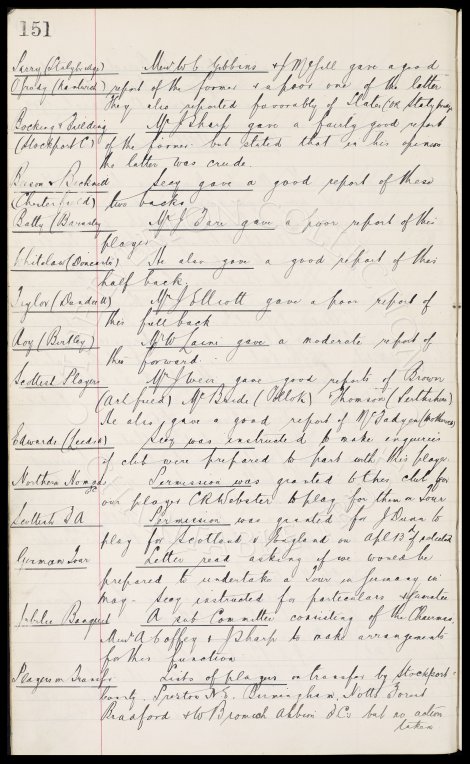 151
Parry (Stalybridge) Messrs W C Gibbins & J McGill gave a good
Grady (Nantwich) report of the former & a poor one of the latter
They also reported favorably of Slater (GK Stalybridge
Bocking & Fielding Mr J Sharp gave a fairly good report
(Stockport C) of the former but stated that in his opinion
the latter was crude.
Bacon & Secy gave a good report of these
(Chesterfield) two backs
Batty (Barnsley) Mr J Tare gave a poor report of this
player
Whitelaw (Doncaster) He also gave a good report of this
half back
Taylor (Dundee) Mr J Elliott gave a poor report of
this full back
Roy (Birtley) Mr W Laing gave a moderate report of
this forward
Scottish Players Mr J Weir gave good reports of Brown
McBride (Pollok) Thomson (
He also gave a good report of McFadyen (Motherwell
Edwards (Leeds) Secy was instructed to make enquiries
if club were prepared to part with this player.
Northern Nomads Permission was granted to this club for
our player C R Webster to play for them on Tour
Scottish F A Permission was granted for J Dunn to
play for Scotland v England on Apl 13th if selected
German Tour Letter read asking if we would be
prepared to undertake a Tour in Germany in
May - Secy instructed for particulars & guarantee
Jubilee Banquet A sub Committee consisting of the Chairman,
Messrs A Coffey & J Sharp to make arrangements
for this function
Players on Transfer Lists of players on transfer by Stockport
County. Preston N E, Birmingham, Notts Forest
Bradford & W Bromwich Albion F.Cs but no action
taken